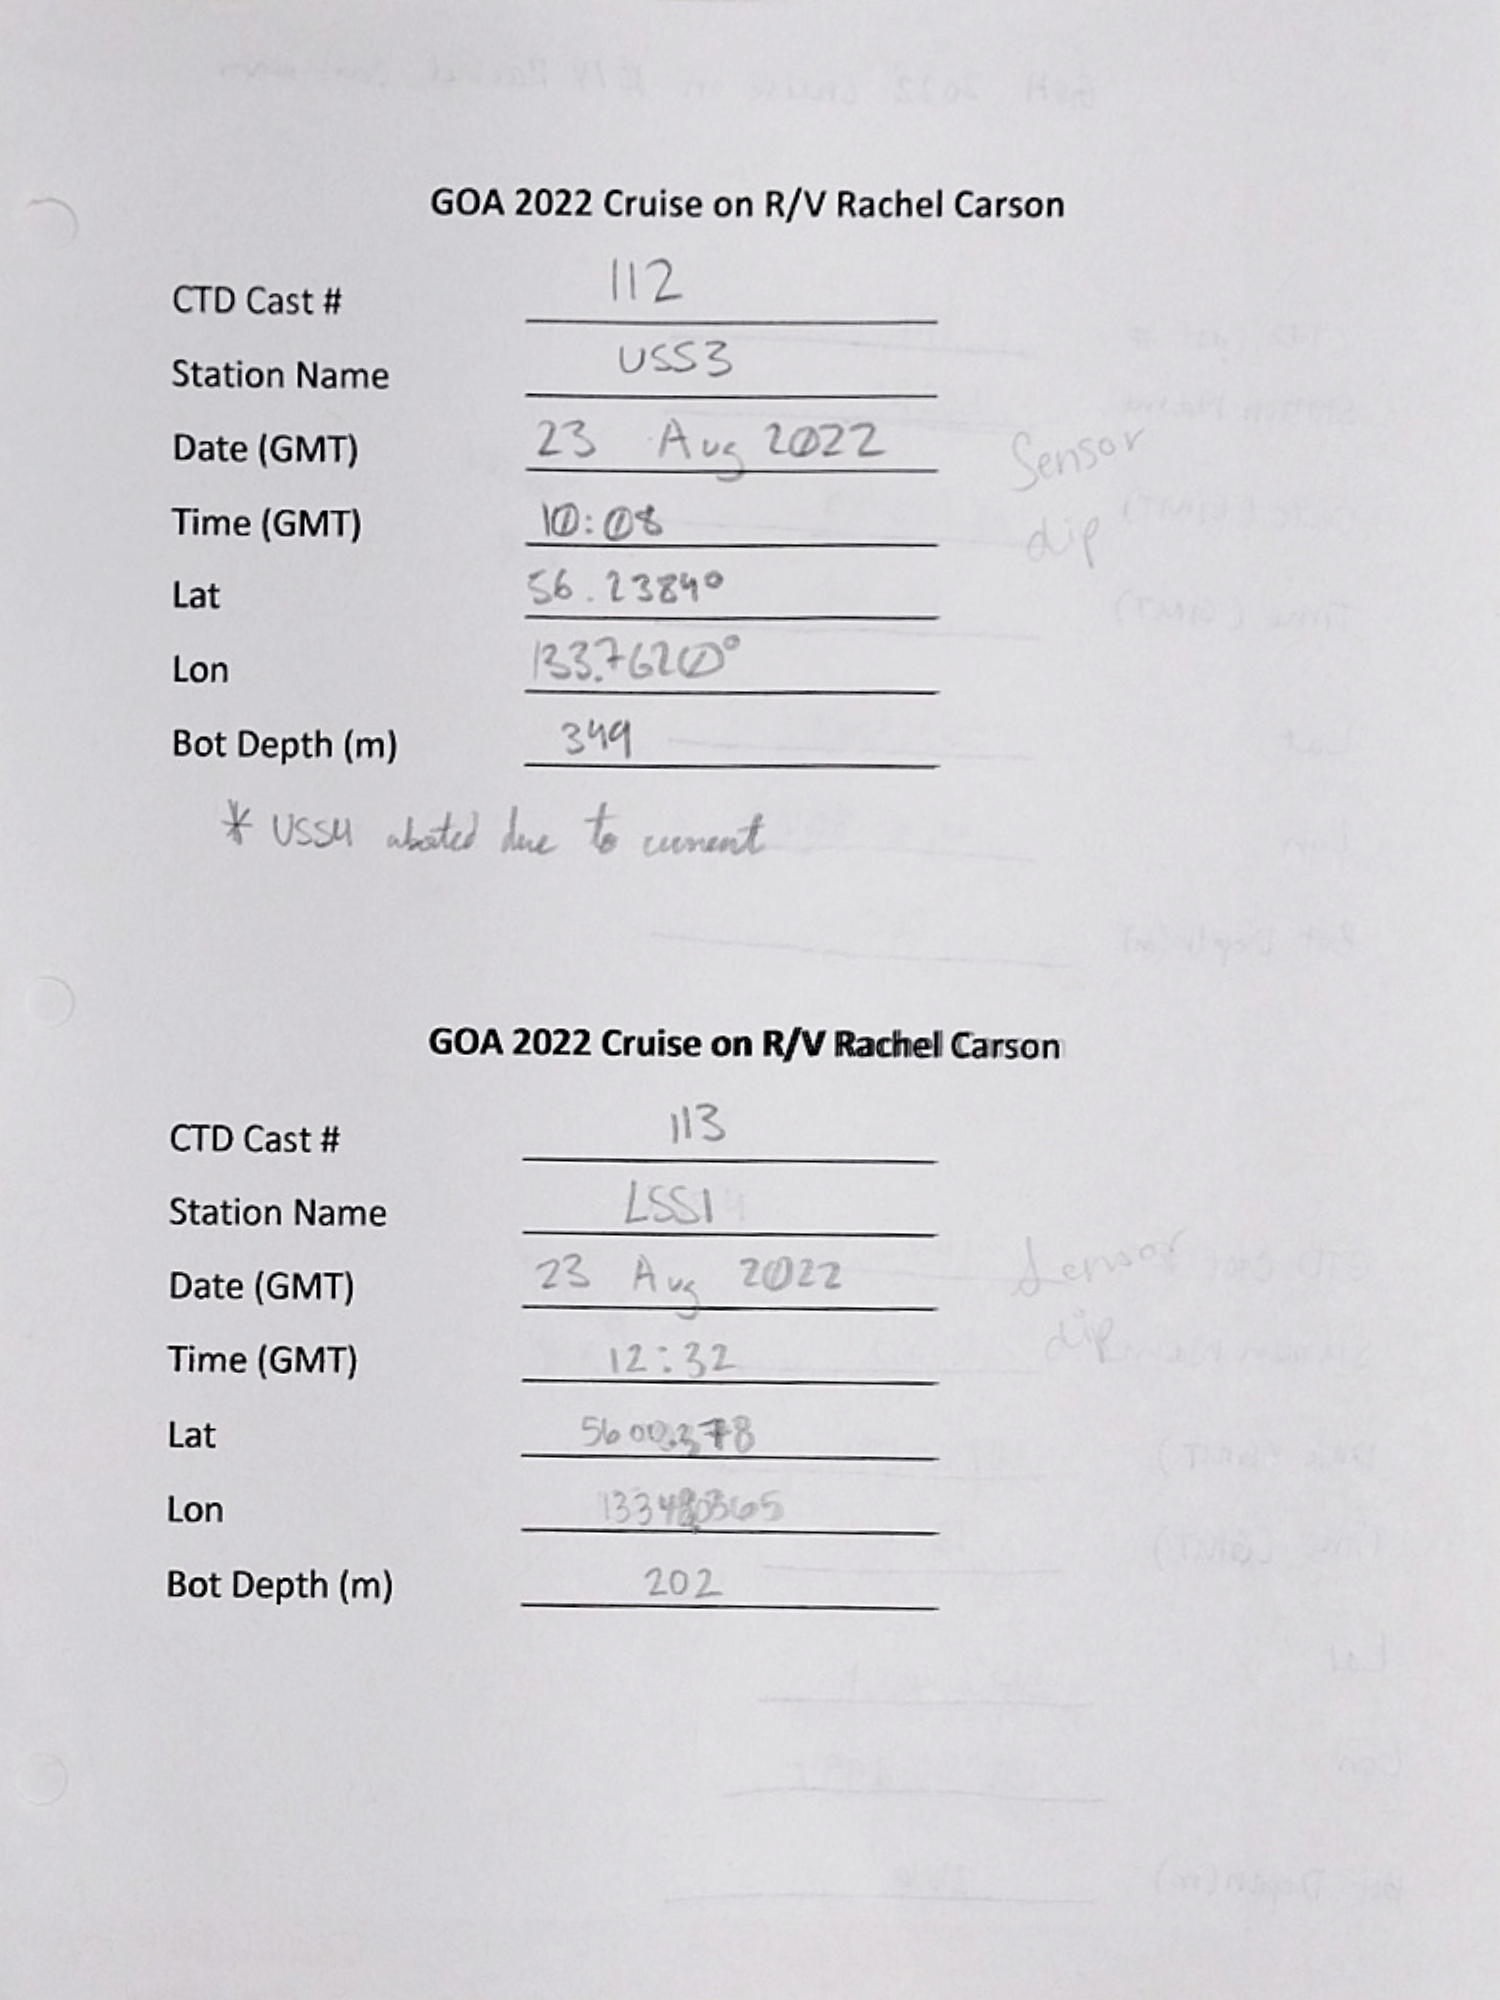 GOA 2022 Cruise on R/V Rachel Carson
CTD Cast # 112
Station Name USS3
Date (GMT) 23 Aug 2022
Sensor
Time (GMT) 10:08
dip
Lat 56.2384°
Lon 133.7620°
Bot Depth (m) 349
* USS4 aborted due to current
GOA 2022 Cruise on R/V Rachel Carson
CTD Cast # 113
Station Name LSS1
Date (GMT) 23 Aug 2022
Sensor
Time (GMT) 12:32
dip
Lat
Lon
Bot Depth (m) 202